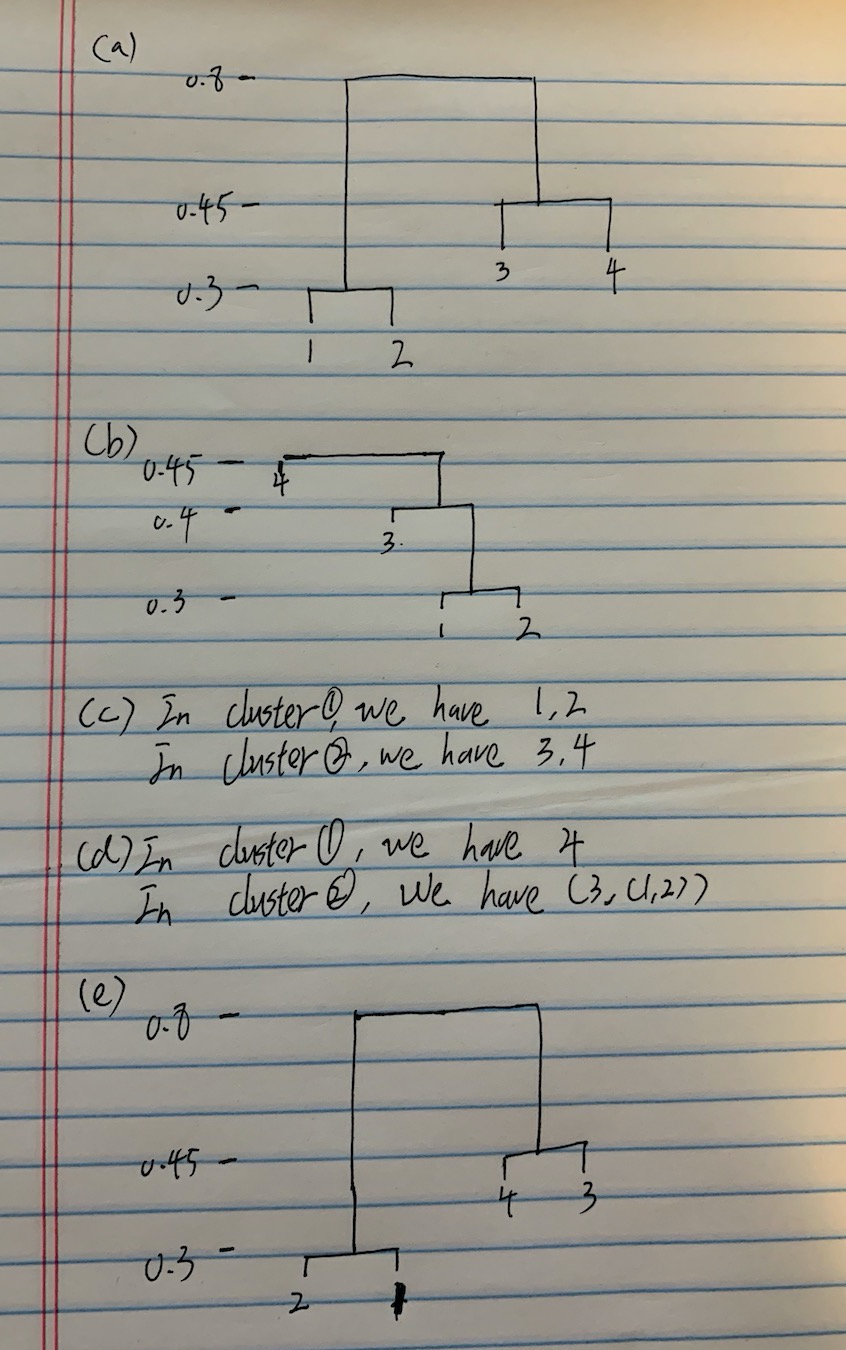 (a)
0.8
0.45
3 4
0.3
1 2
(b)
0.45 4
0.4
3.
0.3
1 2
(c) In cluster ①, we have 1,2
In cluster ②, we have 3,4
(d) In cluster ①, we have 4
In cluster ②, we have (3,(1,2))
(e)
0.8
0.45
4 3
0.3
2 1